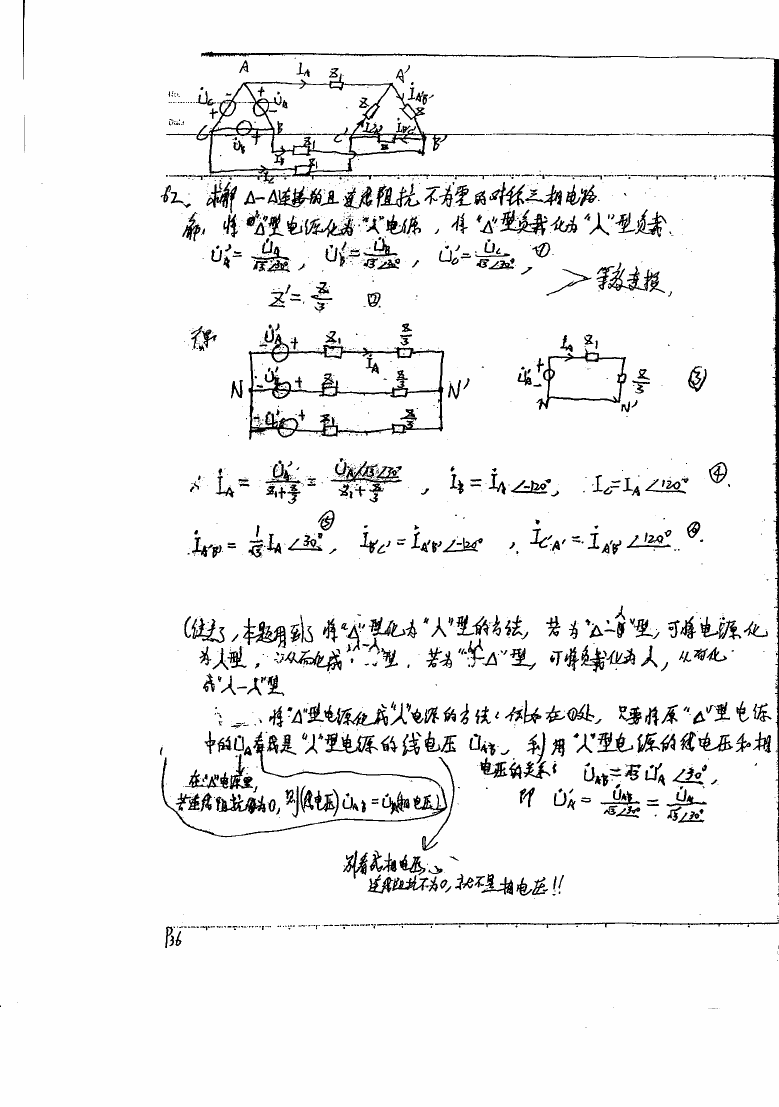 A İA Z₁ A'
U̇C - + + - U̇A Z İA'B' Z
C U̇B + B C' İC'A' İB'C' Z B'
İB Z₁
İC Z₁
求解Δ-Δ连接的且连线阻抗不为零的对称三相电路
解: 将"Δ"型电源化为"人"电源, 将"Δ"型负载化为"人"型负载.
U̇A' = U̇A/√3∠30°, U̇B' = U̇B/√3∠30°, U̇C' = U̇C/√3∠30°, ①
等效变换,
Z' = Z/3 ②
- U̇A' + Z₁ İA Z/3
N - U̇B' + Z₁ Z/3 N'
- U̇C' + Z₁ Z/3
İA Z₁ U̇A' + - Z/3 N N' ③
∴ İA = U̇A'/(Z₁+Z/3) = (U̇A/√3∠30°)/(Z₁+Z/3), İB = İA∠-120°, İC = İA∠120° ④.
İA'B' = 1/√3 İA∠30° ⑤, İB'C' = İA'B'∠-120°, İC'A' = İA'B'∠120° ⑥.
本题用到了将"Δ"型化为"人"型的方法, 若为"Δ-人"型, 可将电源化
为人型, 从而化成"人-人"型. 若为"人-Δ"型, 可将负载化为人, 从而化
成"人-人"型
将"Δ"型电源化成"人"电源的方法: 例如在①处, 只要将原"Δ"型电源
中的U̇A看成是"人"型电源的线电压U̇AB, 利用"人"型电源的线电压和相
电压的关系: U̇AB = √3 U̇A'∠30°,
即 U̇A' = U̇AB/√3∠30° = U̇A/√3∠30°
在"Δ"电源里,
若连线阻抗为0, 则(线电压)U̇AB = U̇A(相电压)
别看成相电压
连线阻抗不为0, 就不是相电压!!
P36